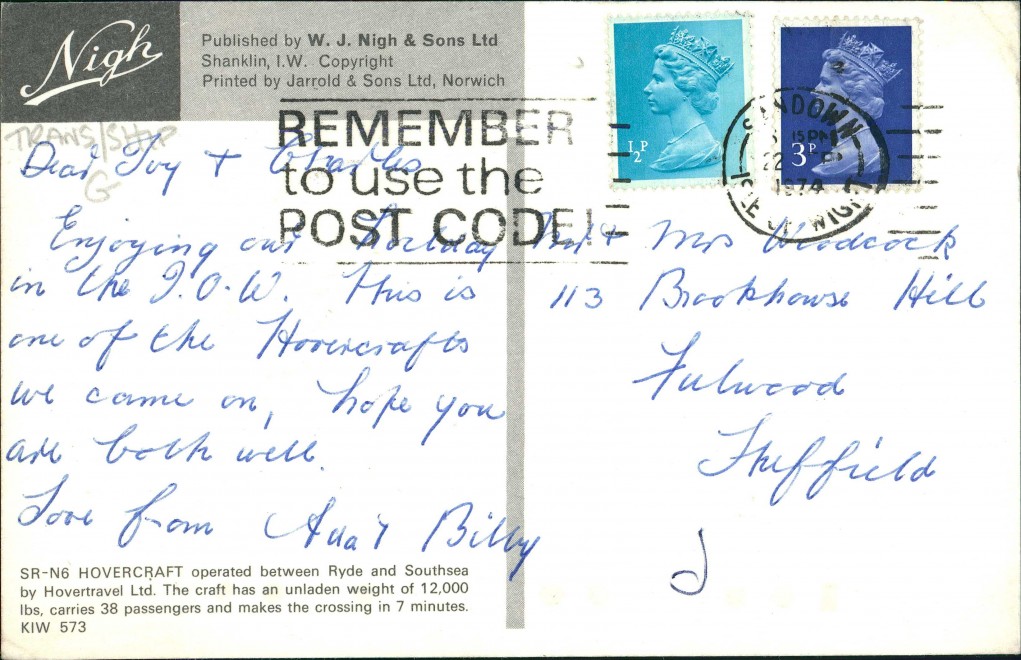 Nigh
Published by W. J. Nigh & Sons Ltd
Shanklin, I.W. Copyright
Printed by Jarrold & Sons Ltd, Norwich
TRANS/SHIP
G
REMEMBER
to use the
POST CODE
½P
3P
SANDOWN
15 PM
22
1974
ISLE OF WIGHT
Dear Ivy + Charles
Enjoying our holiday
in the I.O.W. This is
one of the Hovercrafts
we came on, hope you
are both well.
Love from Ada + Billy
Mr + Mrs Woodcock
113 Brookhouse Hill
Fulwood
Sheffield
SR-N6 HOVERCRAFT operated between Ryde and Southsea
by Hovertravel Ltd. The craft has an unladen weight of 12,000
lbs, carries 38 passengers and makes the crossing in 7 minutes.
KIW 573